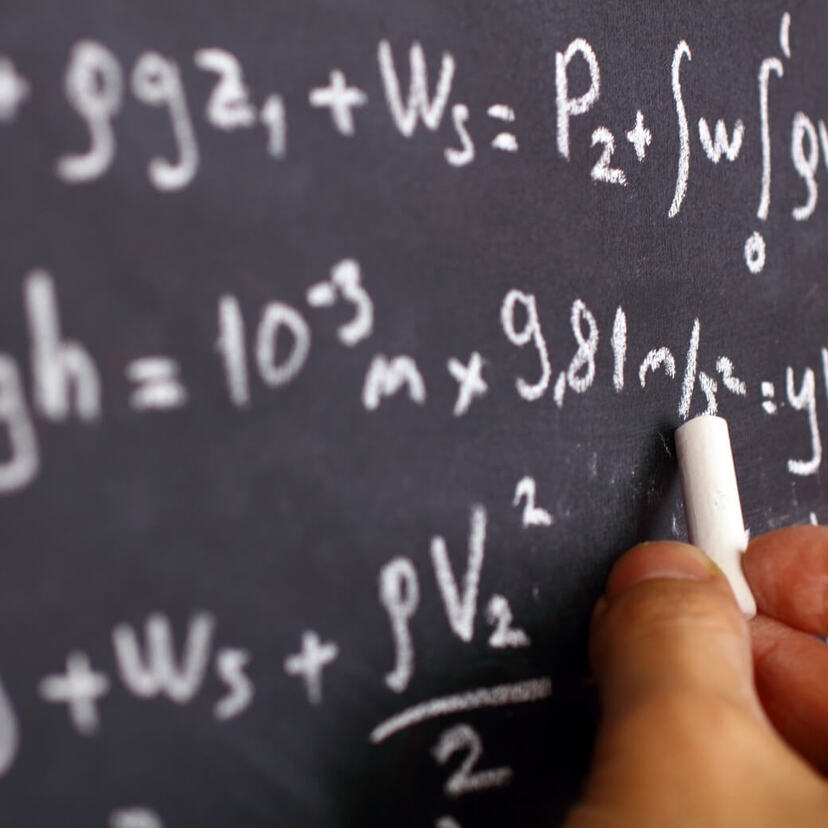 + ρgz₁ + Wₛ = P₂ + ∫w ∫₀¹ ρ
gh = 10⁻³ m × 9,81 m/s² = y
+ Wₛ + ρV₂²/2